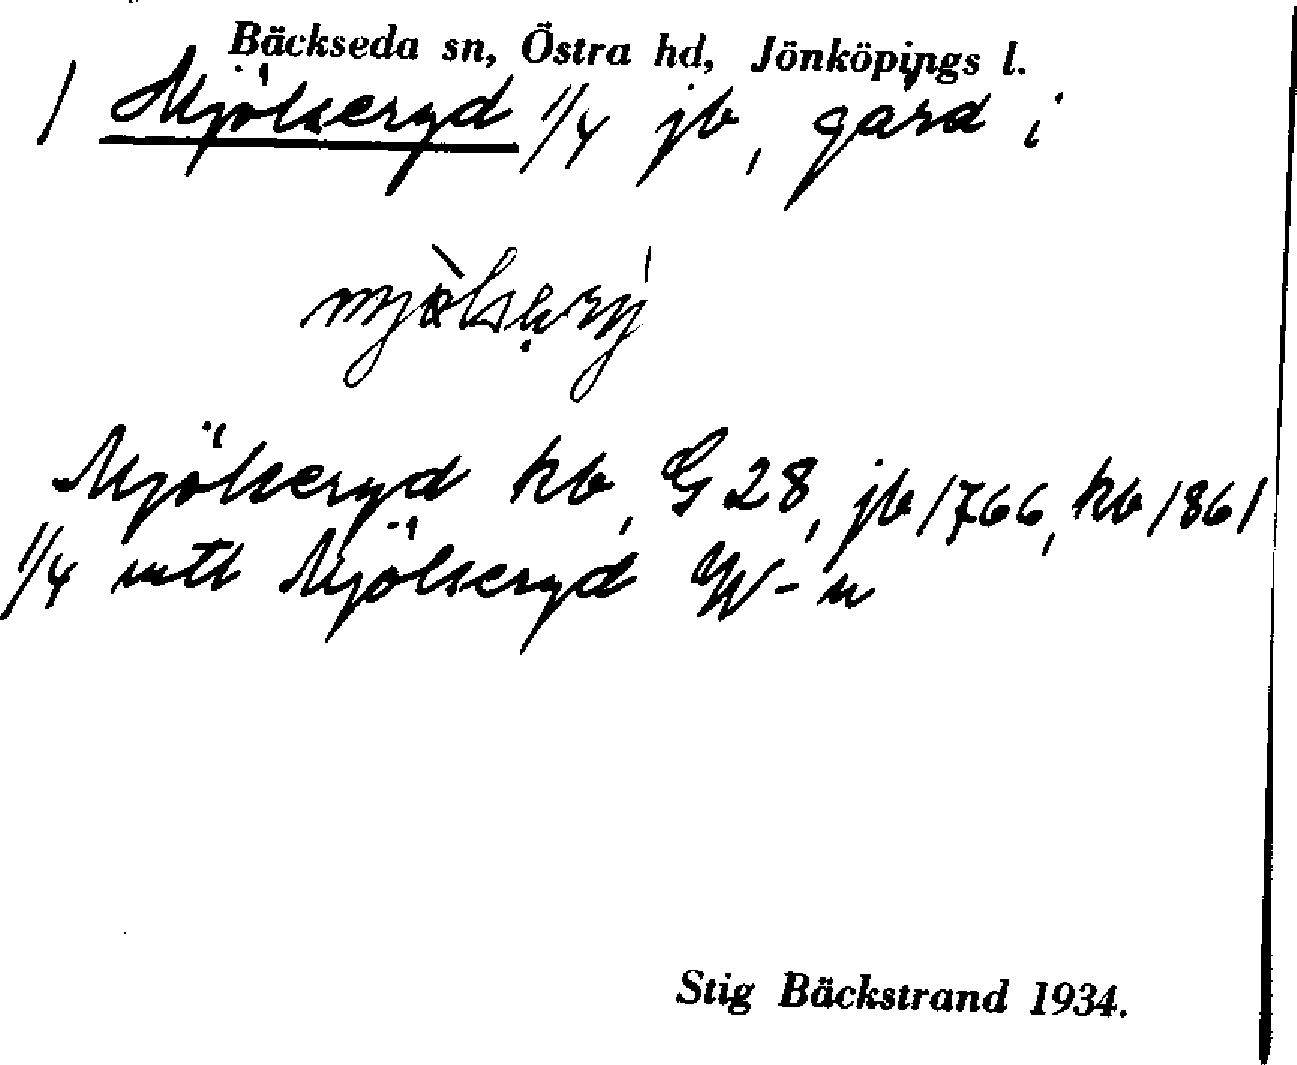 Bäckseda sn, Östra hd, Jönköpings l.
1 Mjölkeryd 1/4 jb, gård i
Mjölkeryd kb, G 28, jb 1766, kb 1861
1/4 mtl Mjölkeryd W-n
Stig Bäckstrand 1934.